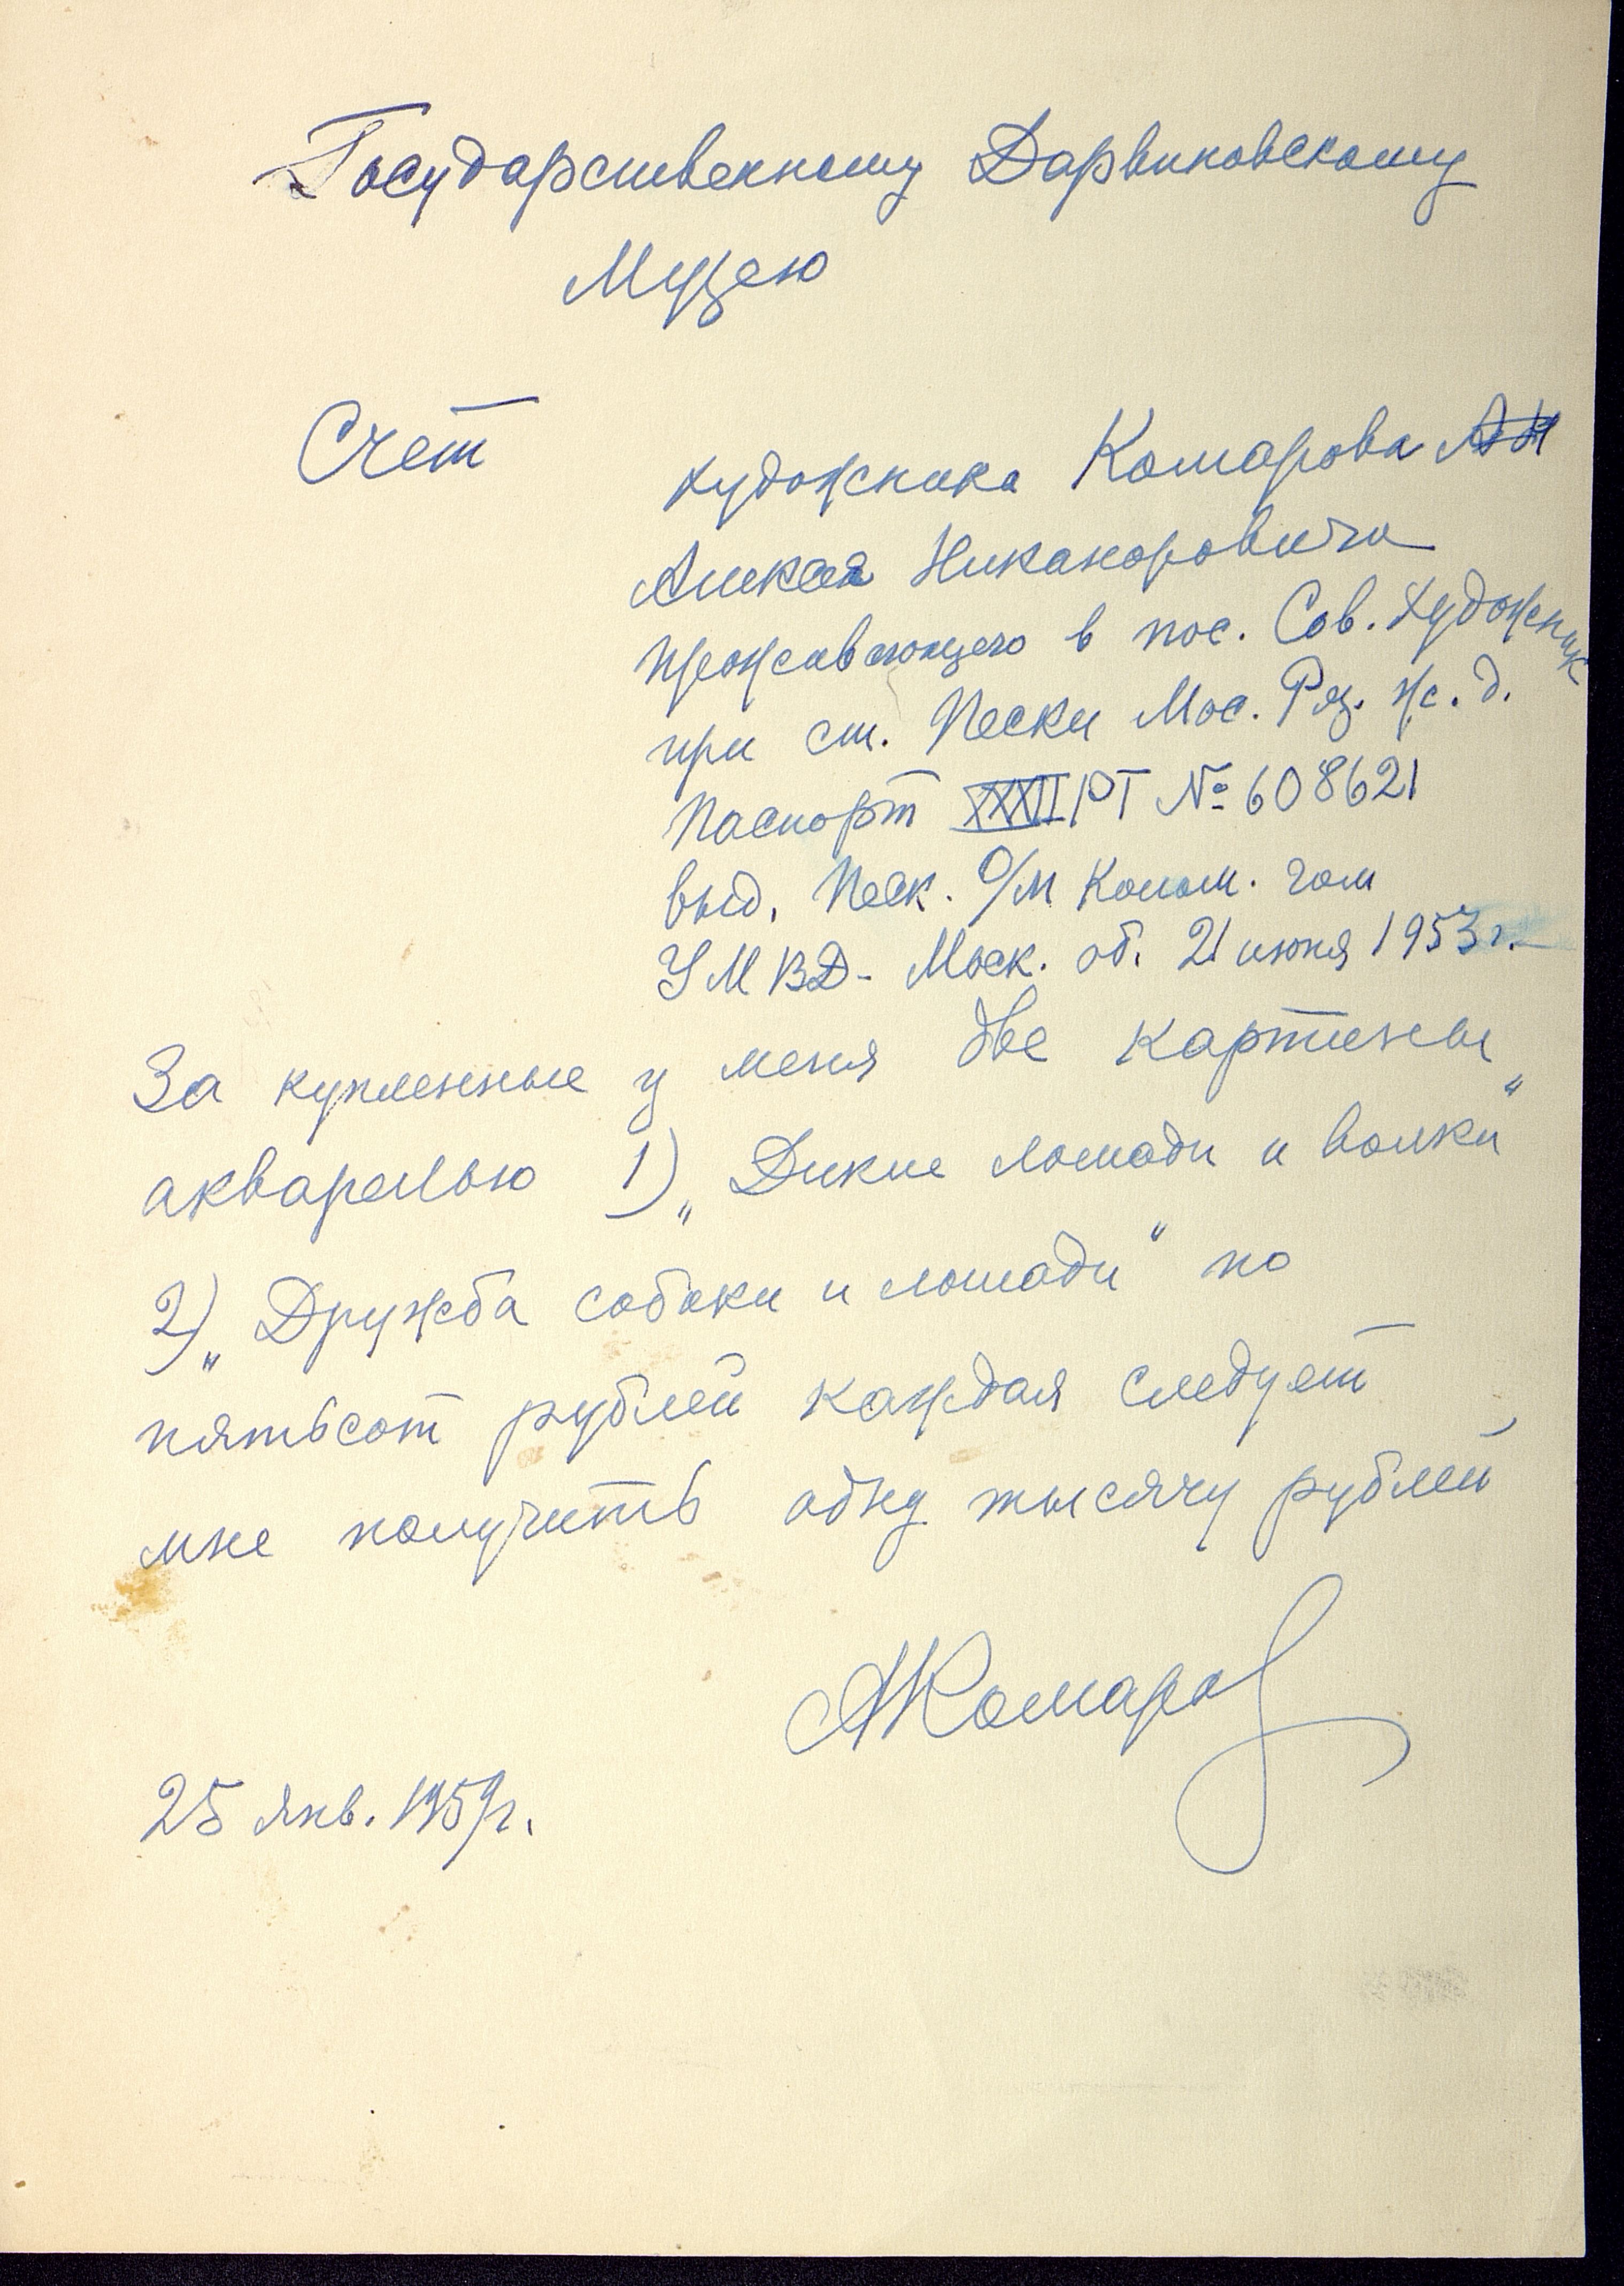 Государственному Дарвиновскому
Музею
Счет
художника Комарова АН
Алексея Никаноровича
проживающего в пос. Сов. Художник
при ст. Пески Мос. Ряз. ж. д.
Паспорт XXXII РТ № 608621
выд. Песк. О/М Колом. гом
УМВД - Моск. об. 21 июня 1953 г.
За купленные у меня две картины
акварелью 1) „Дикие лошади и волки“
2) „Дружба собаки и лошади“ по
пятьсот рублей каждая следует
мне получить одну тысячу рублей
АКомаров
25 янв. 1959 г.